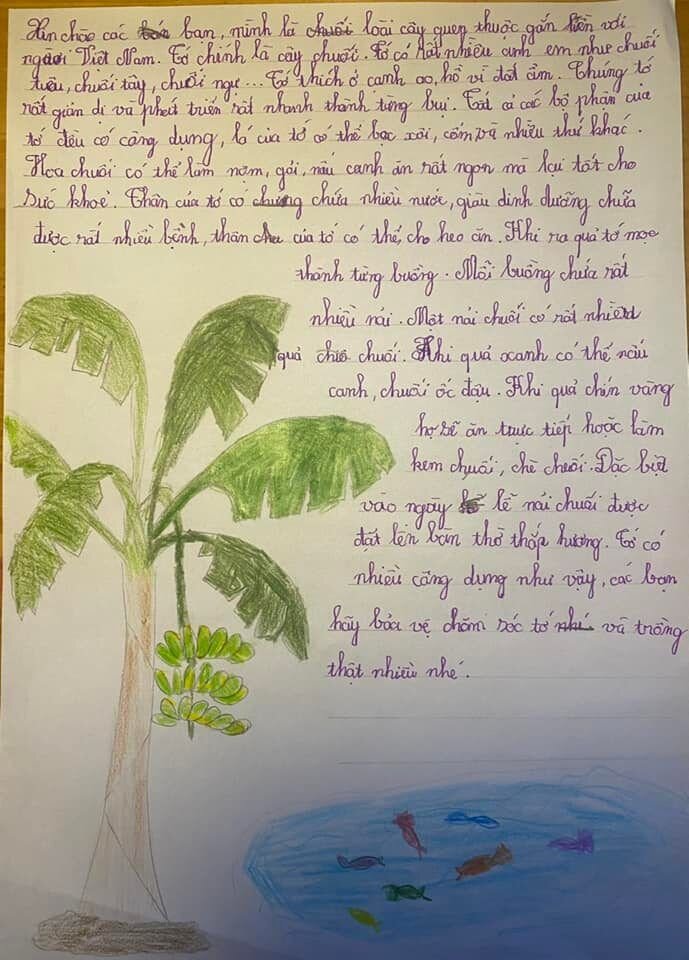 Xin chào các bạn, mình là chuối loài cây quen thuộc gắn liền với
người Việt Nam. Tớ chính là cây chuối. Tớ có rất nhiều anh em như chuối
tiêu, chuối tây, chuối ngự... Tớ thích ở cạnh ao, hồ vì đất ẩm. Chúng tớ
rất giản dị và phát triển rất nhanh thành từng bụi. Tất cả các bộ phận của
tớ đều có công dụng, lá của tớ có thể bọc xôi, cốm, và nhiều thứ khác.
Hoa chuối có thể làm nơm, gỏi, nấu canh ăn rất ngon mà lại tốt cho
sức khoẻ. Thân của tớ có chứa nhiều nước, giàu dinh dưỡng chữa
được rất nhiều bệnh, thân của tớ có thể, cho heo ăn. Khi ra quả tớ mọc
thành từng buồng. Mỗi buồng chứa rất
nhiều nải. Một nải chuối có rất nhiều
quả chuối. Khi quả xanh có thể nấu
canh, chuối ốc đậu. Khi quả chín vàng
họ sẽ ăn trực tiếp hoặc làm
kem chuối, chè chuối. Đặc biệt
vào ngày lễ nải chuối được
đặt lên bàn thờ thắp hương. Tớ có
nhiều công dụng như vậy, các bạn
hãy bảo vệ chăm sóc tớ và trồng
thật nhiều nhé.